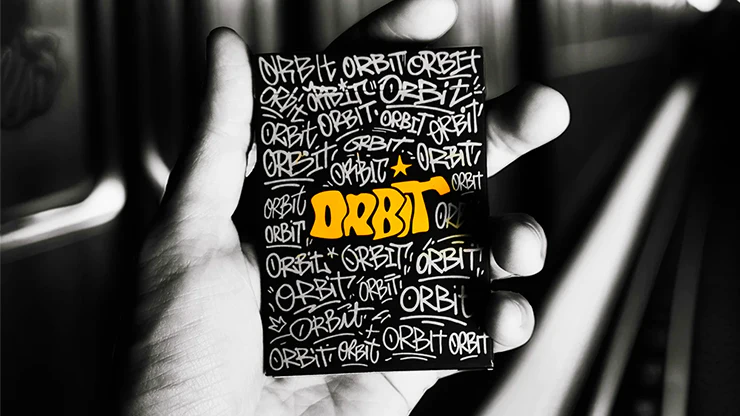 ORBIT ORBIT ORBIT
ORBIT ORBIT ORBIT
ORBIT ORBIT ORBIT ORBIT
ORBIT ORBIT ORBIT
ORBIT
ORBIT ORBIT ORBIT
ORBIT ORBIT
ORBIT
ORBIT ORBIT ORBIT
ORBIT ORBIT ORBIT
ORBIT ORBIT ORBIT
ORBIT ORBIT